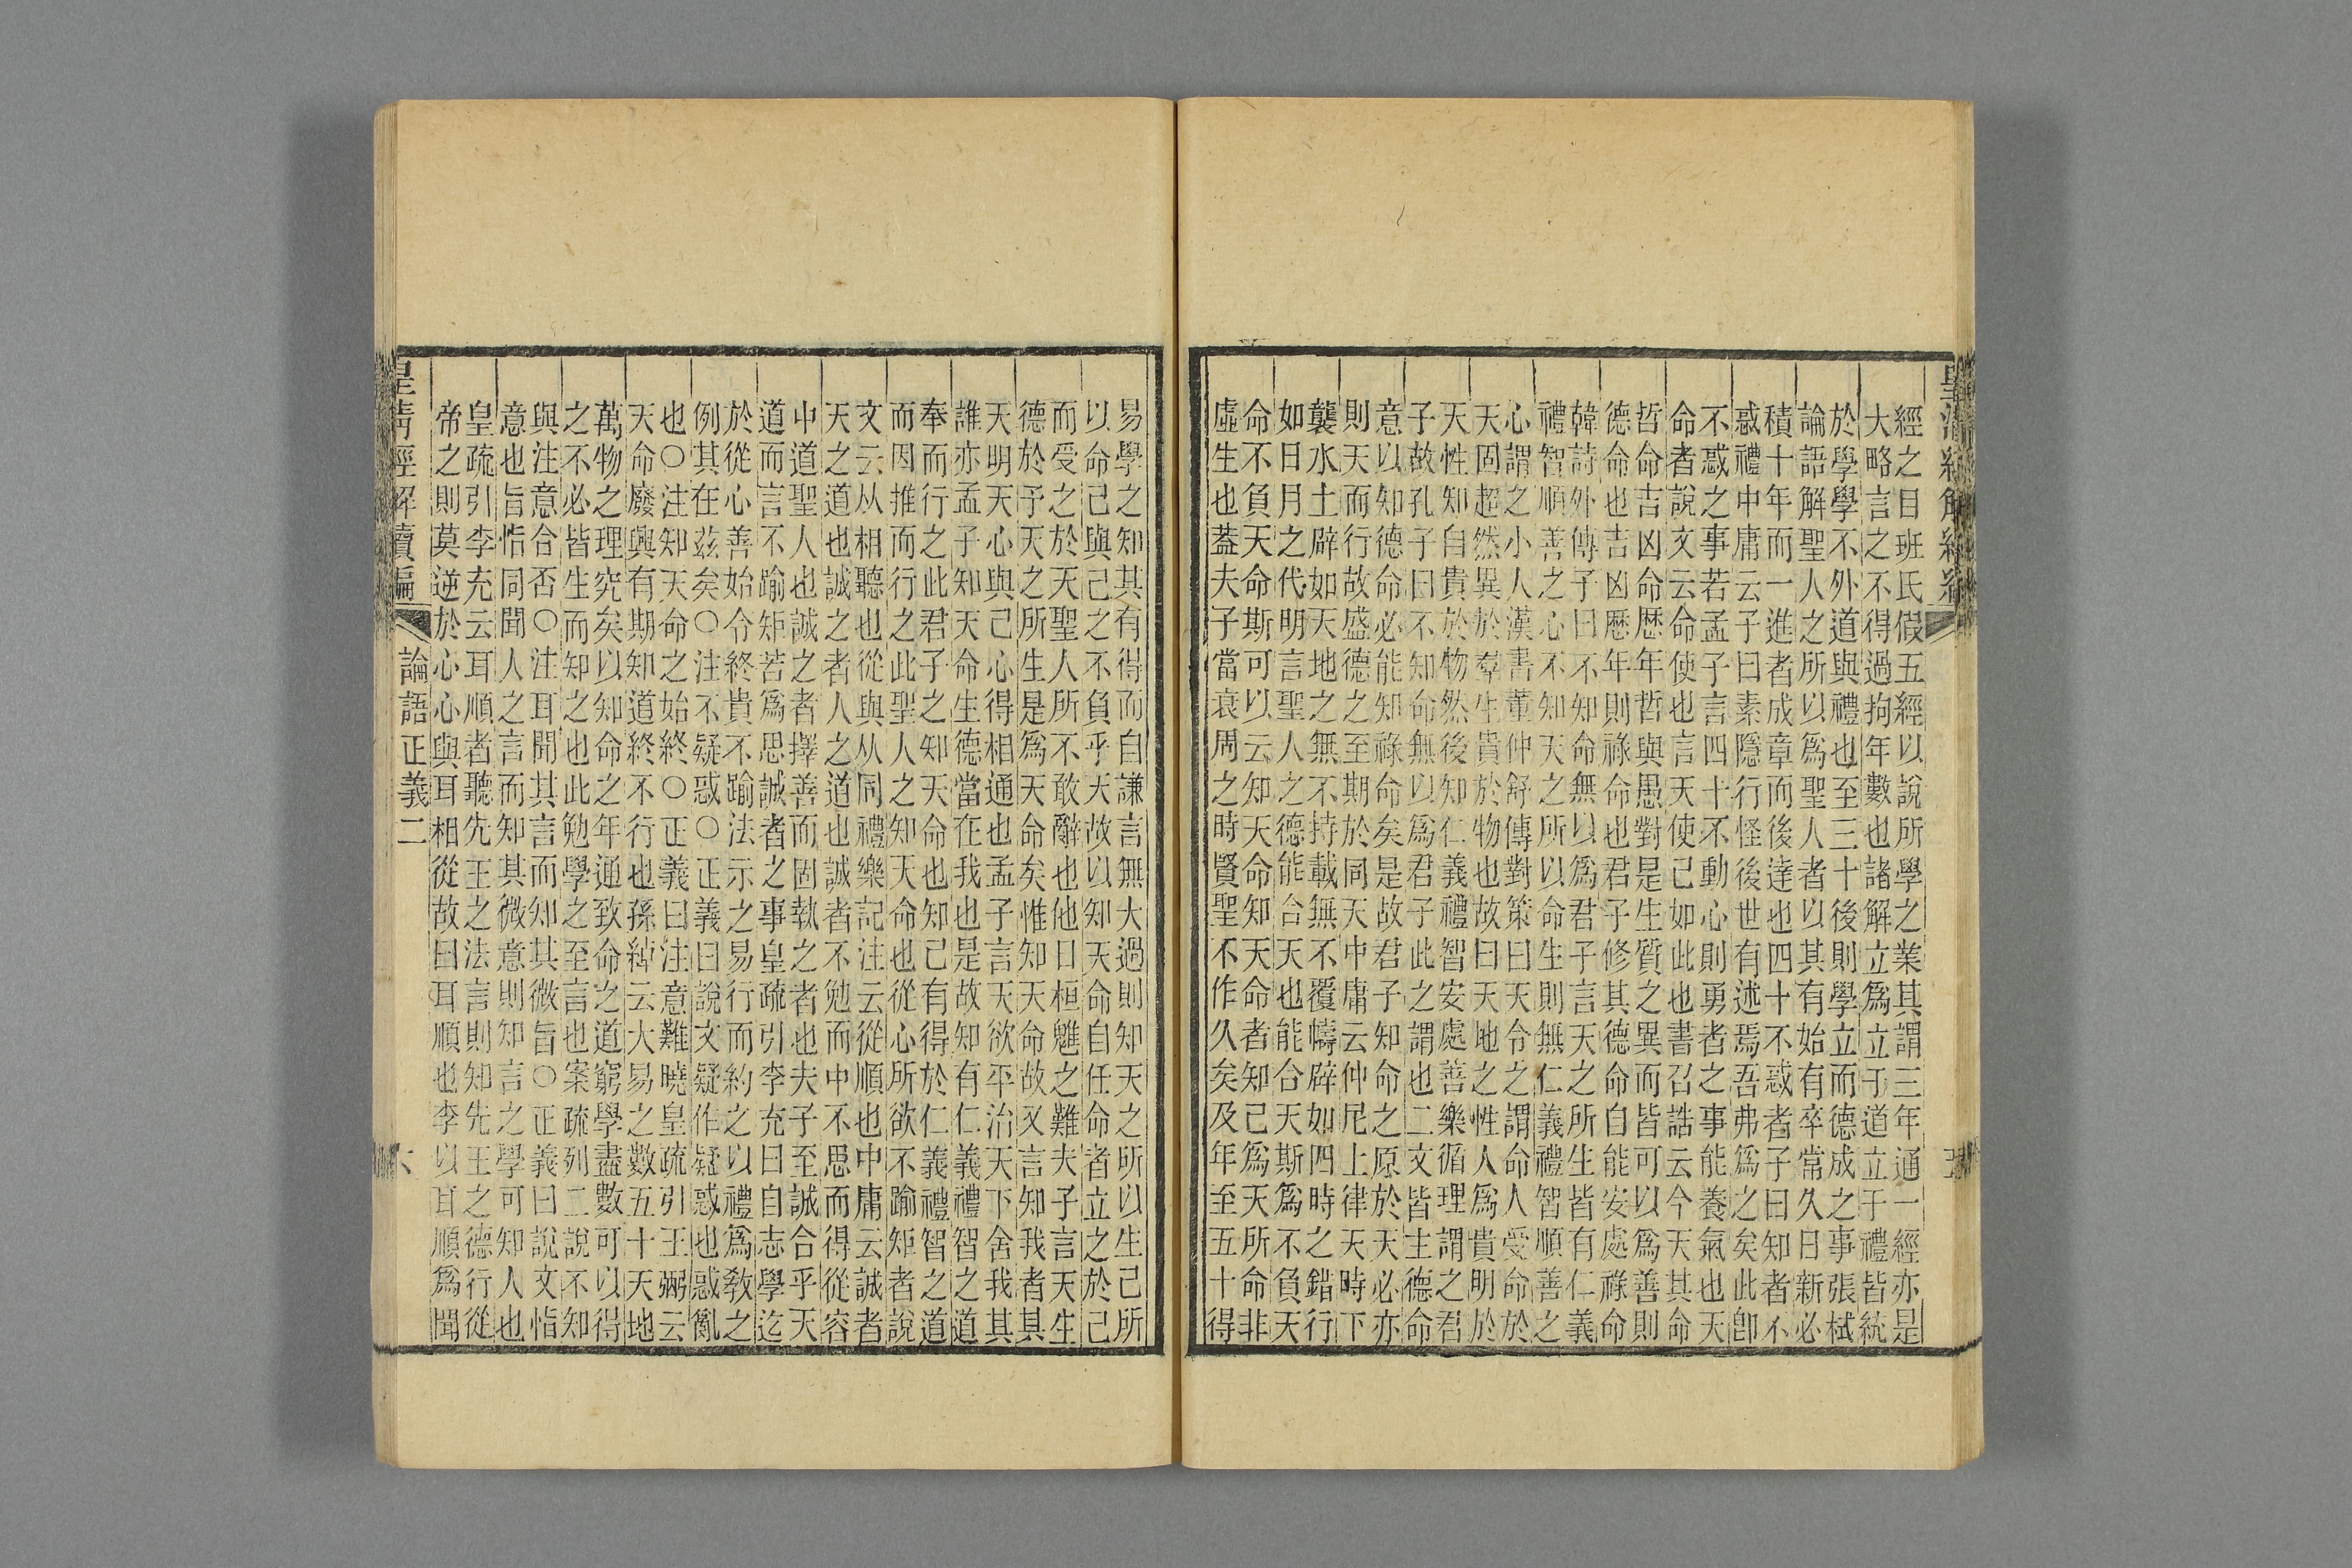 經之目班氏假五經以說所學之業其謂三年通一經亦是
大略言之不得過拘年數也諸解立爲立于道立于禮皆統
於學學不外道與禮也至三十後則學立而德成之事張栻
論語解聖人之所以爲聖人者以其有始有卒常久日新必
積十年而一進者成章而後達也四十不惑者子曰知者不
惑禮中庸云子曰素隱行怪後世有述焉吾弗爲之矣此卽
不惑之事若孟子言四十不動心則勇者之事能養氣也天
命者說文云命使也言天使己如此也書召誥云今天其命
哲命吉凶命歷年哲與愚對是生質之異而皆可以爲善則
德命也吉凶歷年則祿命也君子修其德命自能安處祿命
韓詩外傳子曰不知命無以爲君子言天之所生皆有仁義
禮智順善之心不知天之所以命生則無仁義禮智順善之
心謂之小人漢書董仲舒傳對策曰天令之謂命人受命於
天固超然異於羣生貴於物也故曰天地之性人爲貴明於
天性知自貴於物然後知仁義禮智安處善樂循理謂之君
子故孔子曰不知命無以爲君子此之謂也二文皆主德命
意以知德命必能知祿命矣是故君子知命之原於天必亦
則天而行故盛德之至期於同天中庸云仲尼上律天時下
襲水土辟如天地之無不持載無不覆幬辟如四時之錯行
如日月之代明言聖人之德能合天也能合天斯爲不負天
命不負天命斯可以云知天命知天命者知己爲天所命非
虛生也蓋夫子當衰周之時賢聖不作久矣及年至五十得
易學之知其有得而自謙言無大過則知天之所以生己所
以命己與己之不負乎天故以知天命自任命者立之於己
而受之於天聖人所不敢辭也他日桓魋之難夫子言天生
德於予天之所生是爲天命矣惟知天命故又言知我者其
天明天心與己心得相通也孟子言天欲平治天下舍我其
誰亦孟子知天命生德當在我也是故知有仁義禮智之道
奉而行之此君子之知天命也知己有得於仁義禮智之道
而因推而行之此聖人之知天命也從心所欲不踰矩者說
文云从相聽也從與从同禮樂記注云從順也中庸云誠者
天之道也誠之者人之道也誠者不勉而中不思而得從容
中道聖人也誠之者擇善而固執之者也夫子至誠合乎天
道而言不踰矩若爲思誠者之事皇疏引李充曰自志學迄
於從心善始令終貴不踰法示之易行而約之以禮爲教之
例其在茲矣○注不疑惑○正義曰說文疑作疑惑也惑亂
也○注知天命之始終○正義曰注意難曉皇疏引王弼云
天命廢興有期知道終不行也孫綽云大易之數五十天地
萬物之理究矣以知命之年通致命之道窮學盡數可以得
之不必皆生而知之也此勉學之至言也案疏列二說不知
與注意合否○注耳聞其言而知其微旨○正義曰說文恉
意也旨恉同聞人之言而知其微意則知言之學可知人也
皇疏引李充云耳順者聽先王之法言則知先王之德行從
帝之則莫逆於心心與耳相從故曰耳順也李以耳順爲聞
皇清經解續編 論語正義二 六